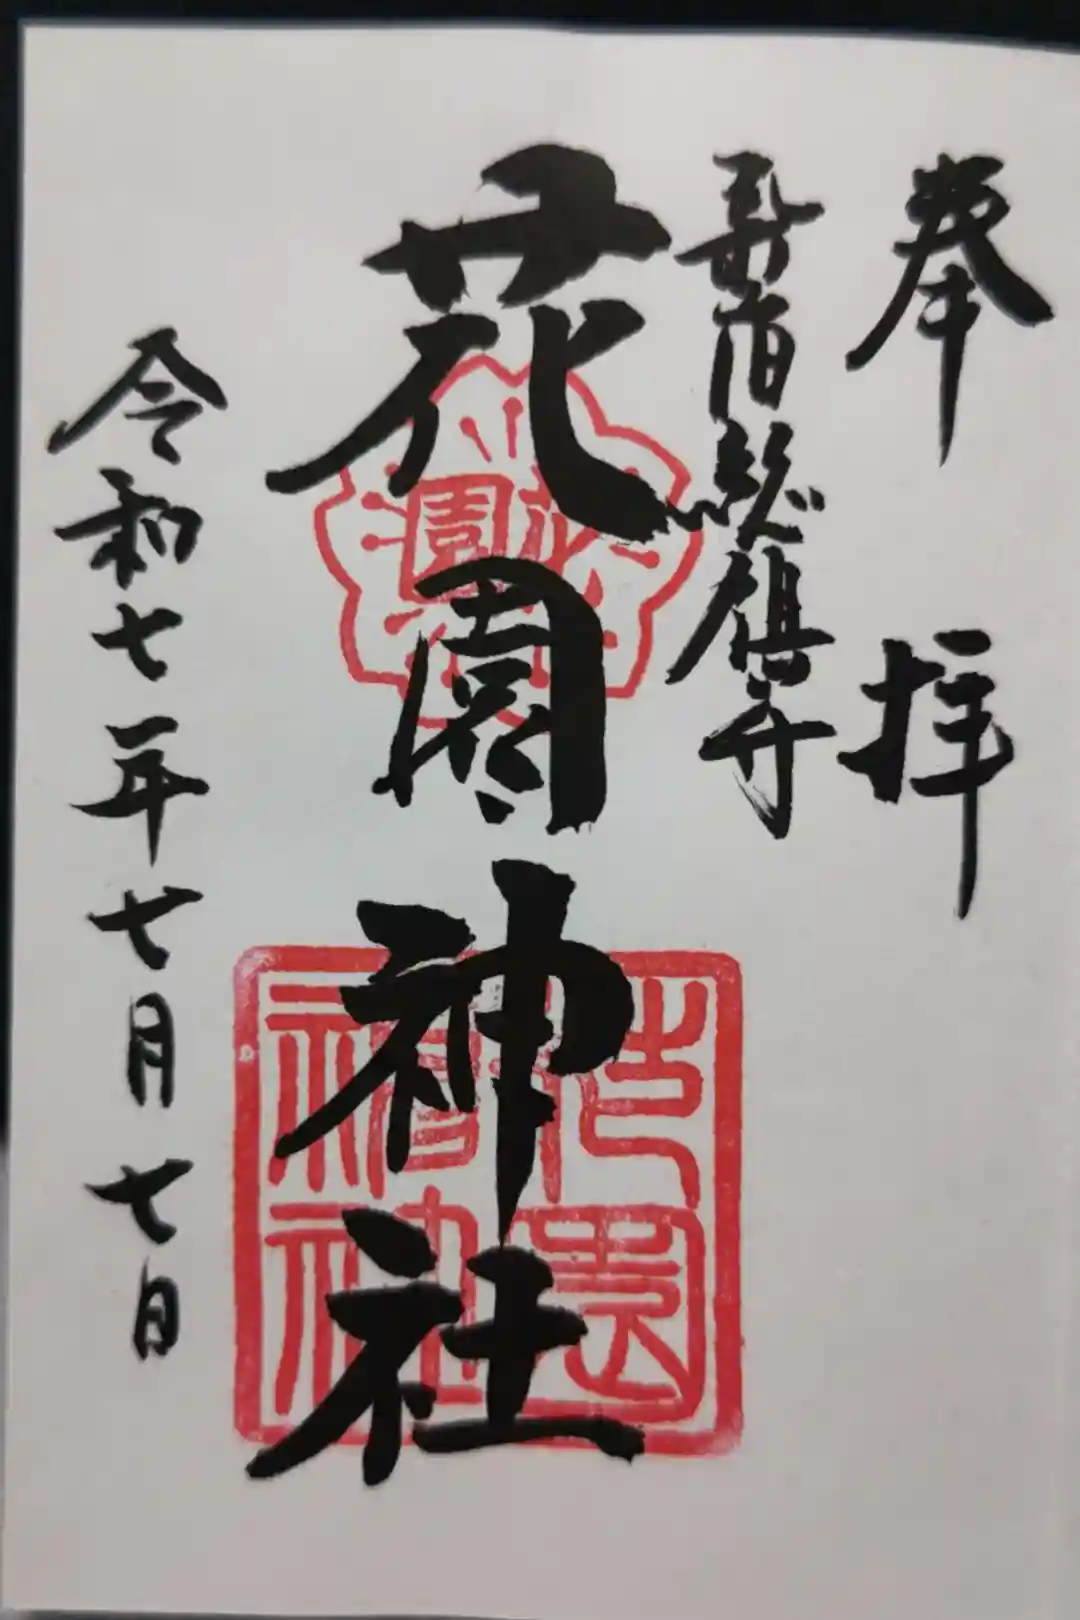 奉拝
新宿総鎮守
花園神社
令和七年七月七日
花園
花園神社